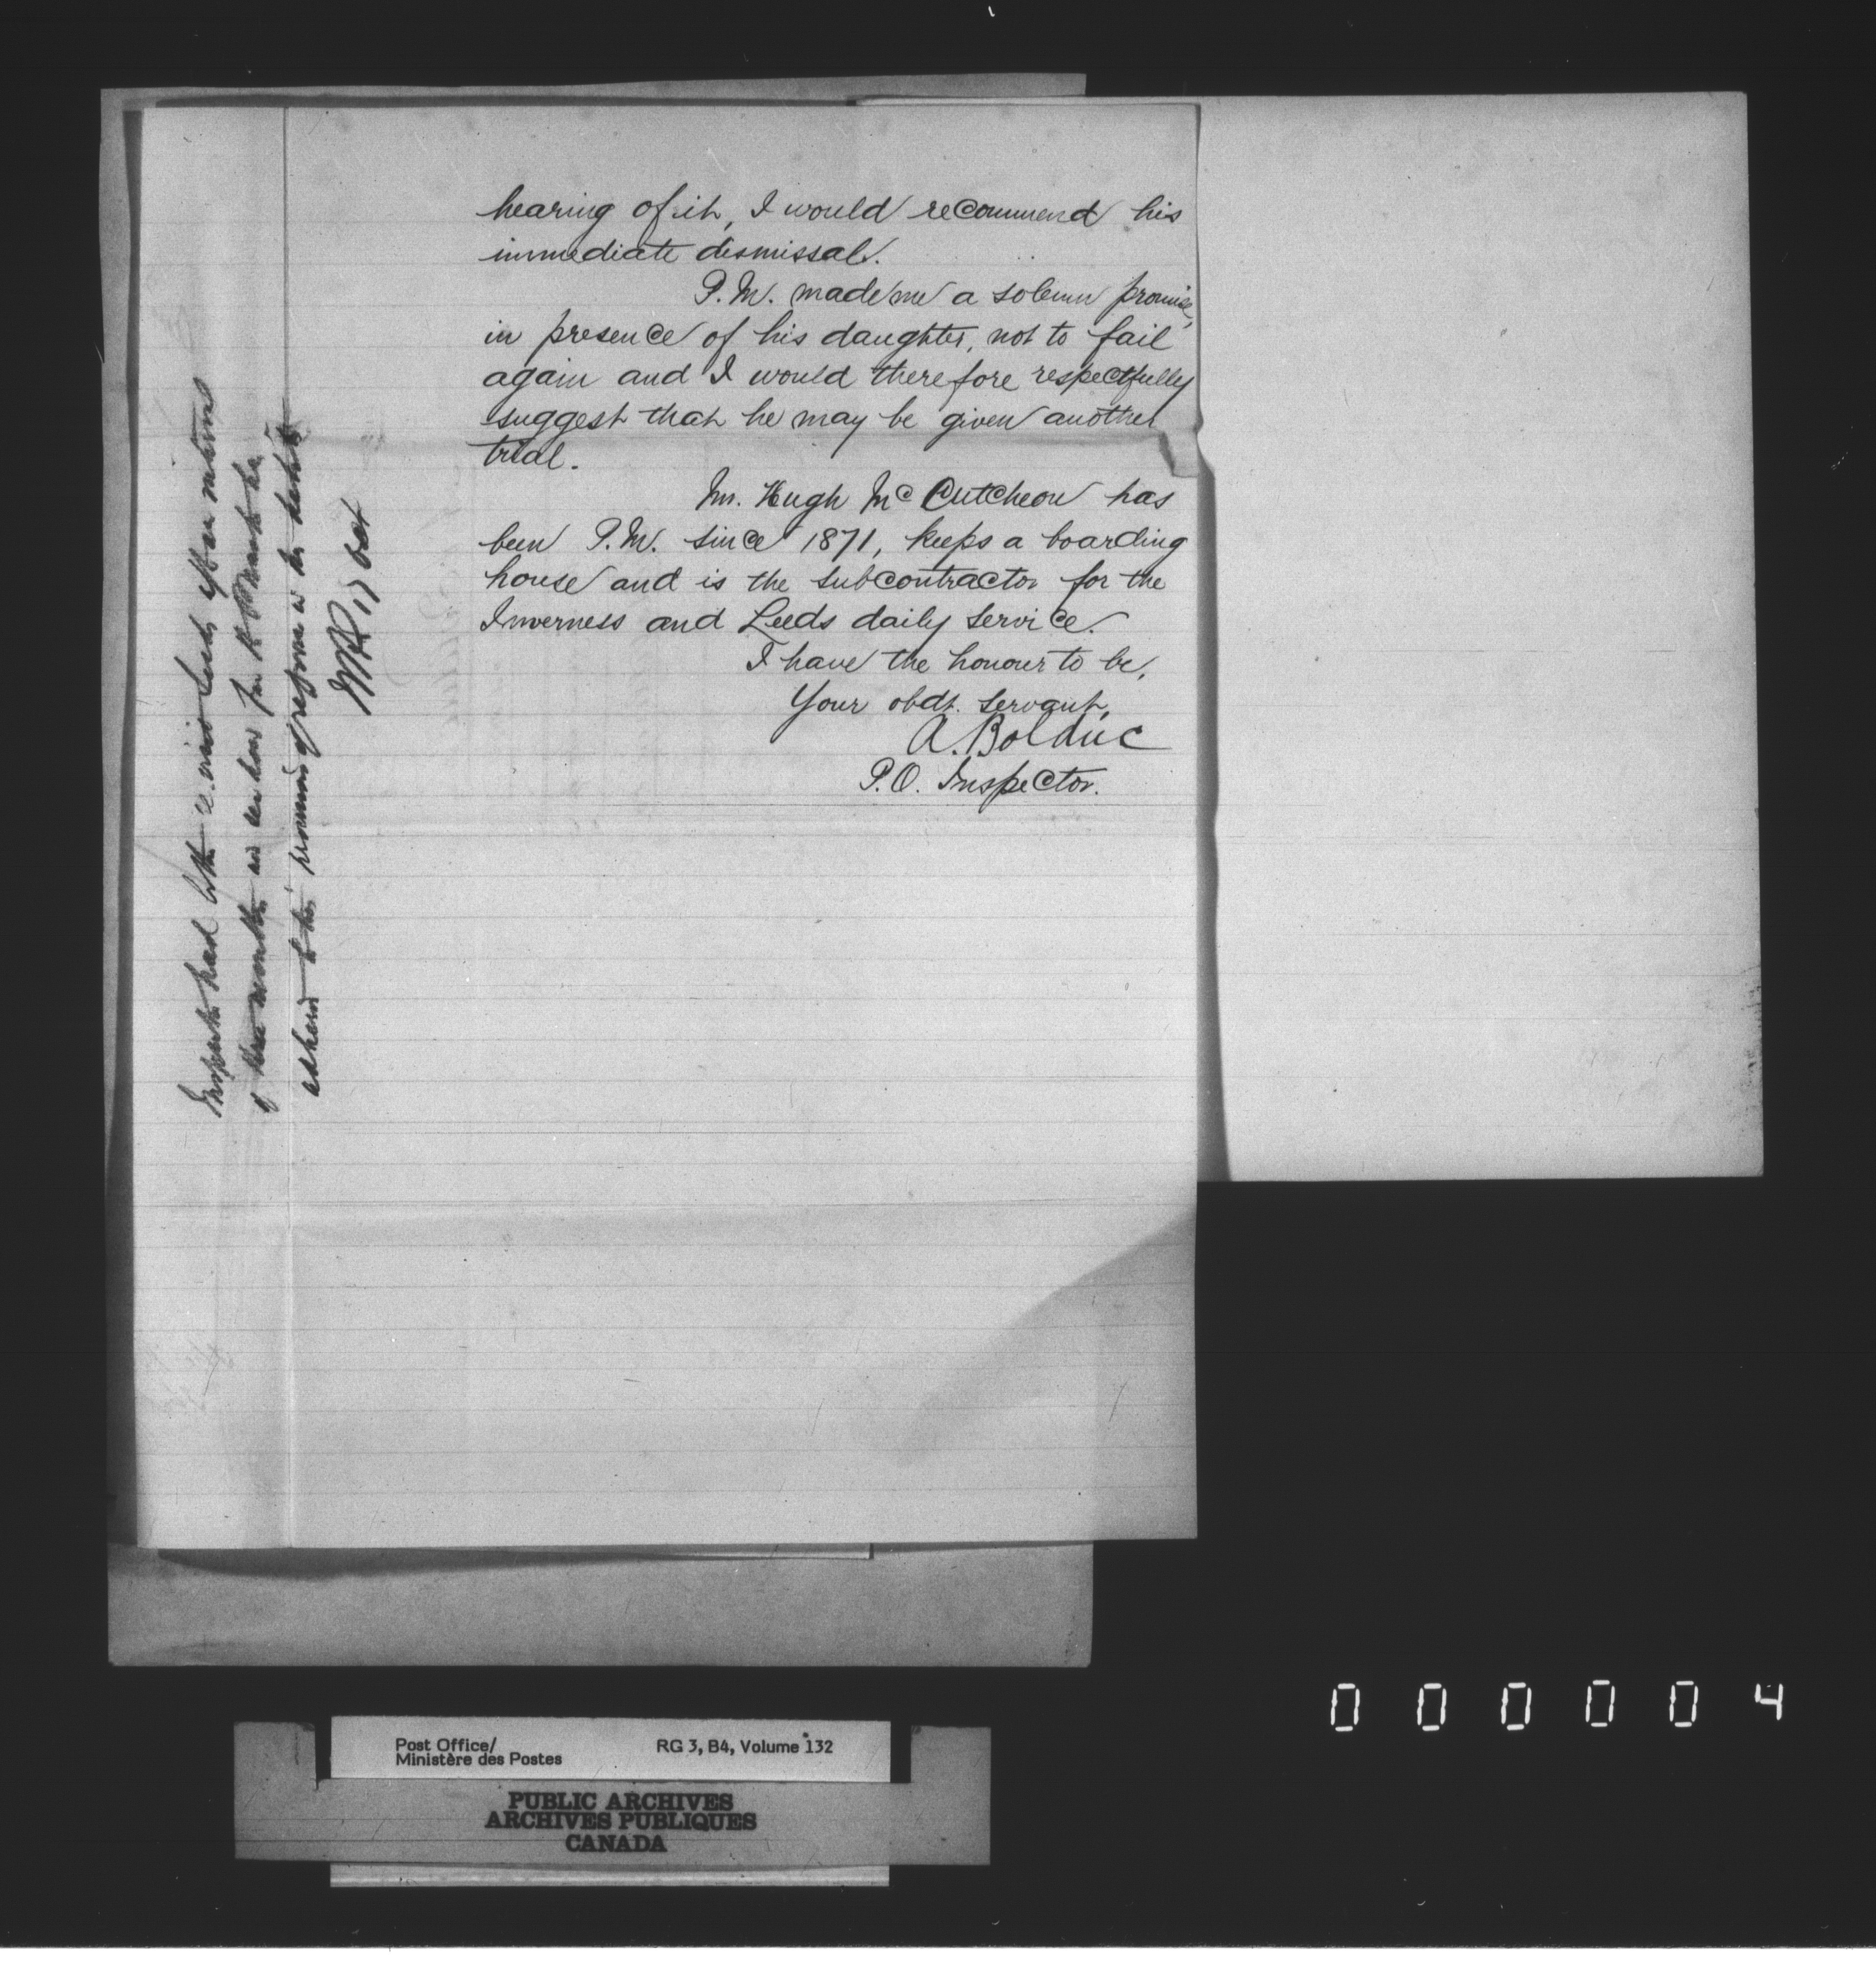 hearing of it, I would recommend his
immediate dismissal.
P.M. made me a solemn promise,
in presence of his daughter, not to fail
again and I would therefore respectfully
suggest that he may be given another
trial.
Mr. Hugh McCutcheon has
been P.M. since 1871, keeps a boarding
house and is the subcontractor for the
Inverness and Leeds daily service.
I have the honour to be,
Your obdt. servant,
A. Bolduc
P.O. Inspector.
Inspector had better
three months
adhered to his promise of reform
Post Office/
Ministère des Postes
RG 3, B4, Volume 132
PUBLIC ARCHIVES
ARCHIVES PUBLIQUES
CANADA
000004